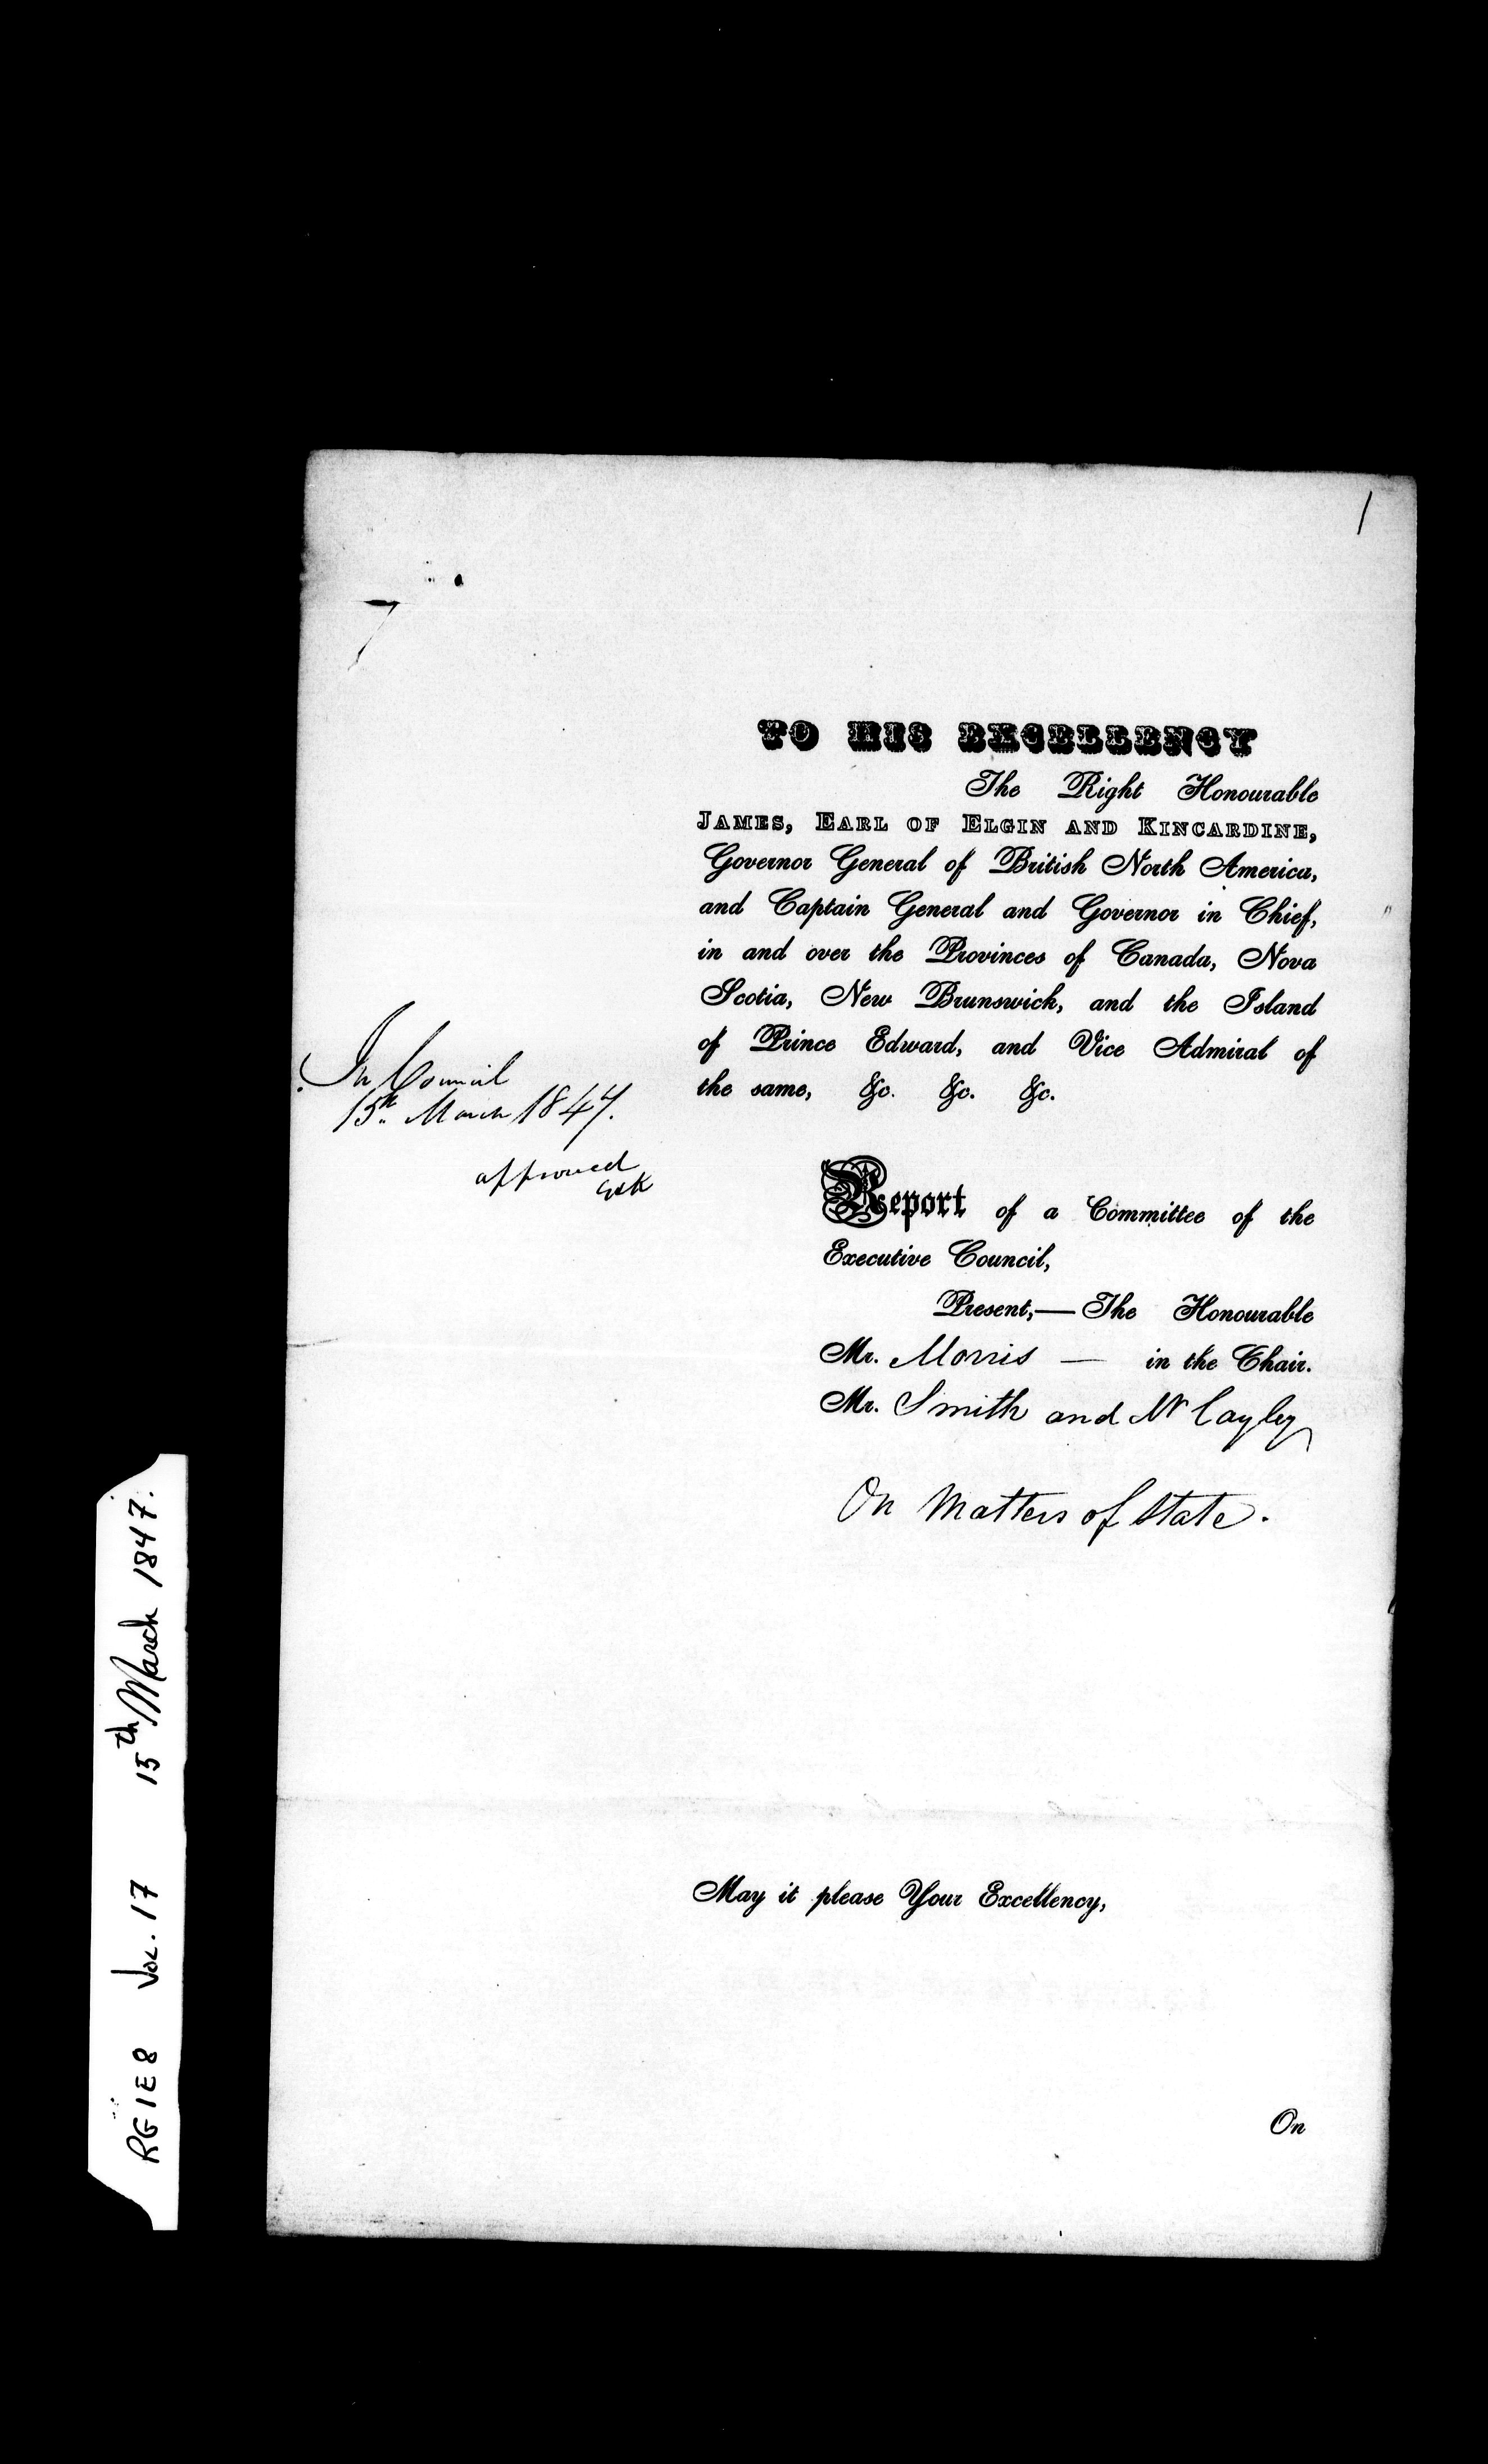 1
7
TO HIS EXCELLENCY
The Right Honourable
JAMES, EARL OF ELGIN AND KINCARDINE,
Governor General of British North America,
and Captain General and Governor in Chief,
in and over the Provinces of Canada, Nova
Scotia, New Brunswick, and the Island
of Prince Edward, and Vice Admiral of
the same, &c. &c. &c.
In Council
15th March 1847.
approved
E&K
Report of a Committee of the
Executive Council,
Present,—The Honourable
Mr. Morris — in the Chair.
Mr. Smith and Mr Cayley
On Matters of State.
May it please Your Excellency,
On
RG1E8 Vol. 17 15th March 1847.